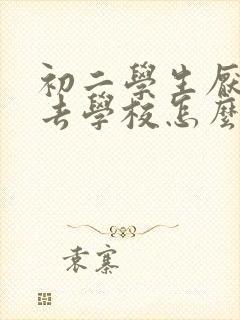 初二學生厭
去學校怎麼
袁寨